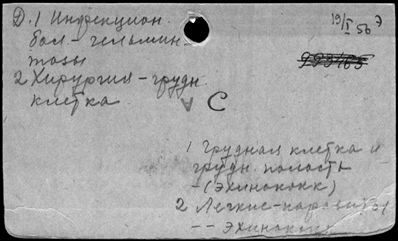 Д. 1 Инфекцион.
бол. - гельмин-
тозы
2 Хирургия - грудн.
клетка
19/I 56 Э
С
1 Грудная клетка и
грудн. полость
- (эхинококк)
2 Легкие - паразиты
-- эхинококк